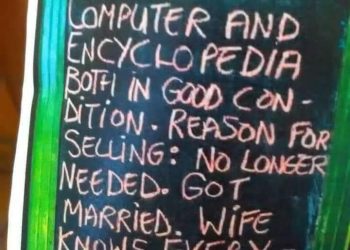 COMPUTER AND
ENCYCLOPEDIA
BOTH IN GOOD CON-
DITION. REASON FOR
SELLING: NO LONGER
NEEDED. GOT
MARRIED. WIFE
KNOWS